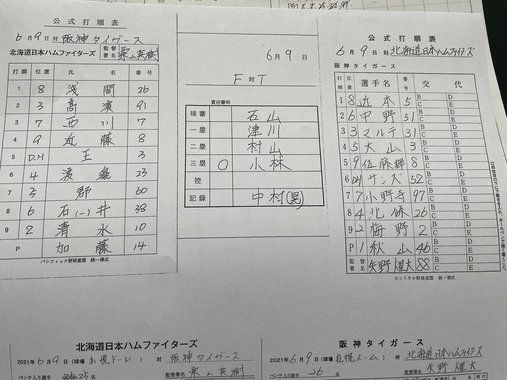 公式打順表
6月9日対 阪神タイガース
北海道日本ハムファイターズ 監督署名 栗山英樹
打順 位置 氏名 番号
1 8 淺間 26
2 3 高濱 91
3 7 西川 7
4 9 近藤 8
5 D.H 王 3
6 4 渡邉 23
7 5 郡 60
8 6 石(一)井 38
9 2 清水 10
P 加藤 14
パシフィック野球連盟 統一様式
6月9日
F対T
責任審判
球審 石山
一塁 津川
二塁 村山
三塁 ○ 小林
控
記録 中村(晃)
公式打順表
6月9日対 北海道日本ハムファイターズ
阪神タイガース
打順 位置 選手名 番号 交代
1 8 近本 5 B C D E
2 6 中野 51 B C D E
3 3 マルテ 31 B C D E
4 5 大山 3 B C D E
5 9 佐藤輝 8 B C D E
6 DH サンズ 52 B C D E
7 7 小野寺 97 B C D E
8 4 北條 26 B C D E
9 2 梅野 2 B C D E
P 1 秋山 46 B C D E
監督署名 矢野燿大 88
セントラル野球連盟 統一様式
北海道日本ハムファイターズ
2021年6月9日(球場 札幌ドーム) 対 阪神タイガース
ベンチ入り選手 監督署名 栗山英樹
阪神タイガース
2021年6月9日(球場 札幌ドーム) 対 北海道日本ハムファイターズ
ベンチ入り選手 26 監督署名 矢野燿大